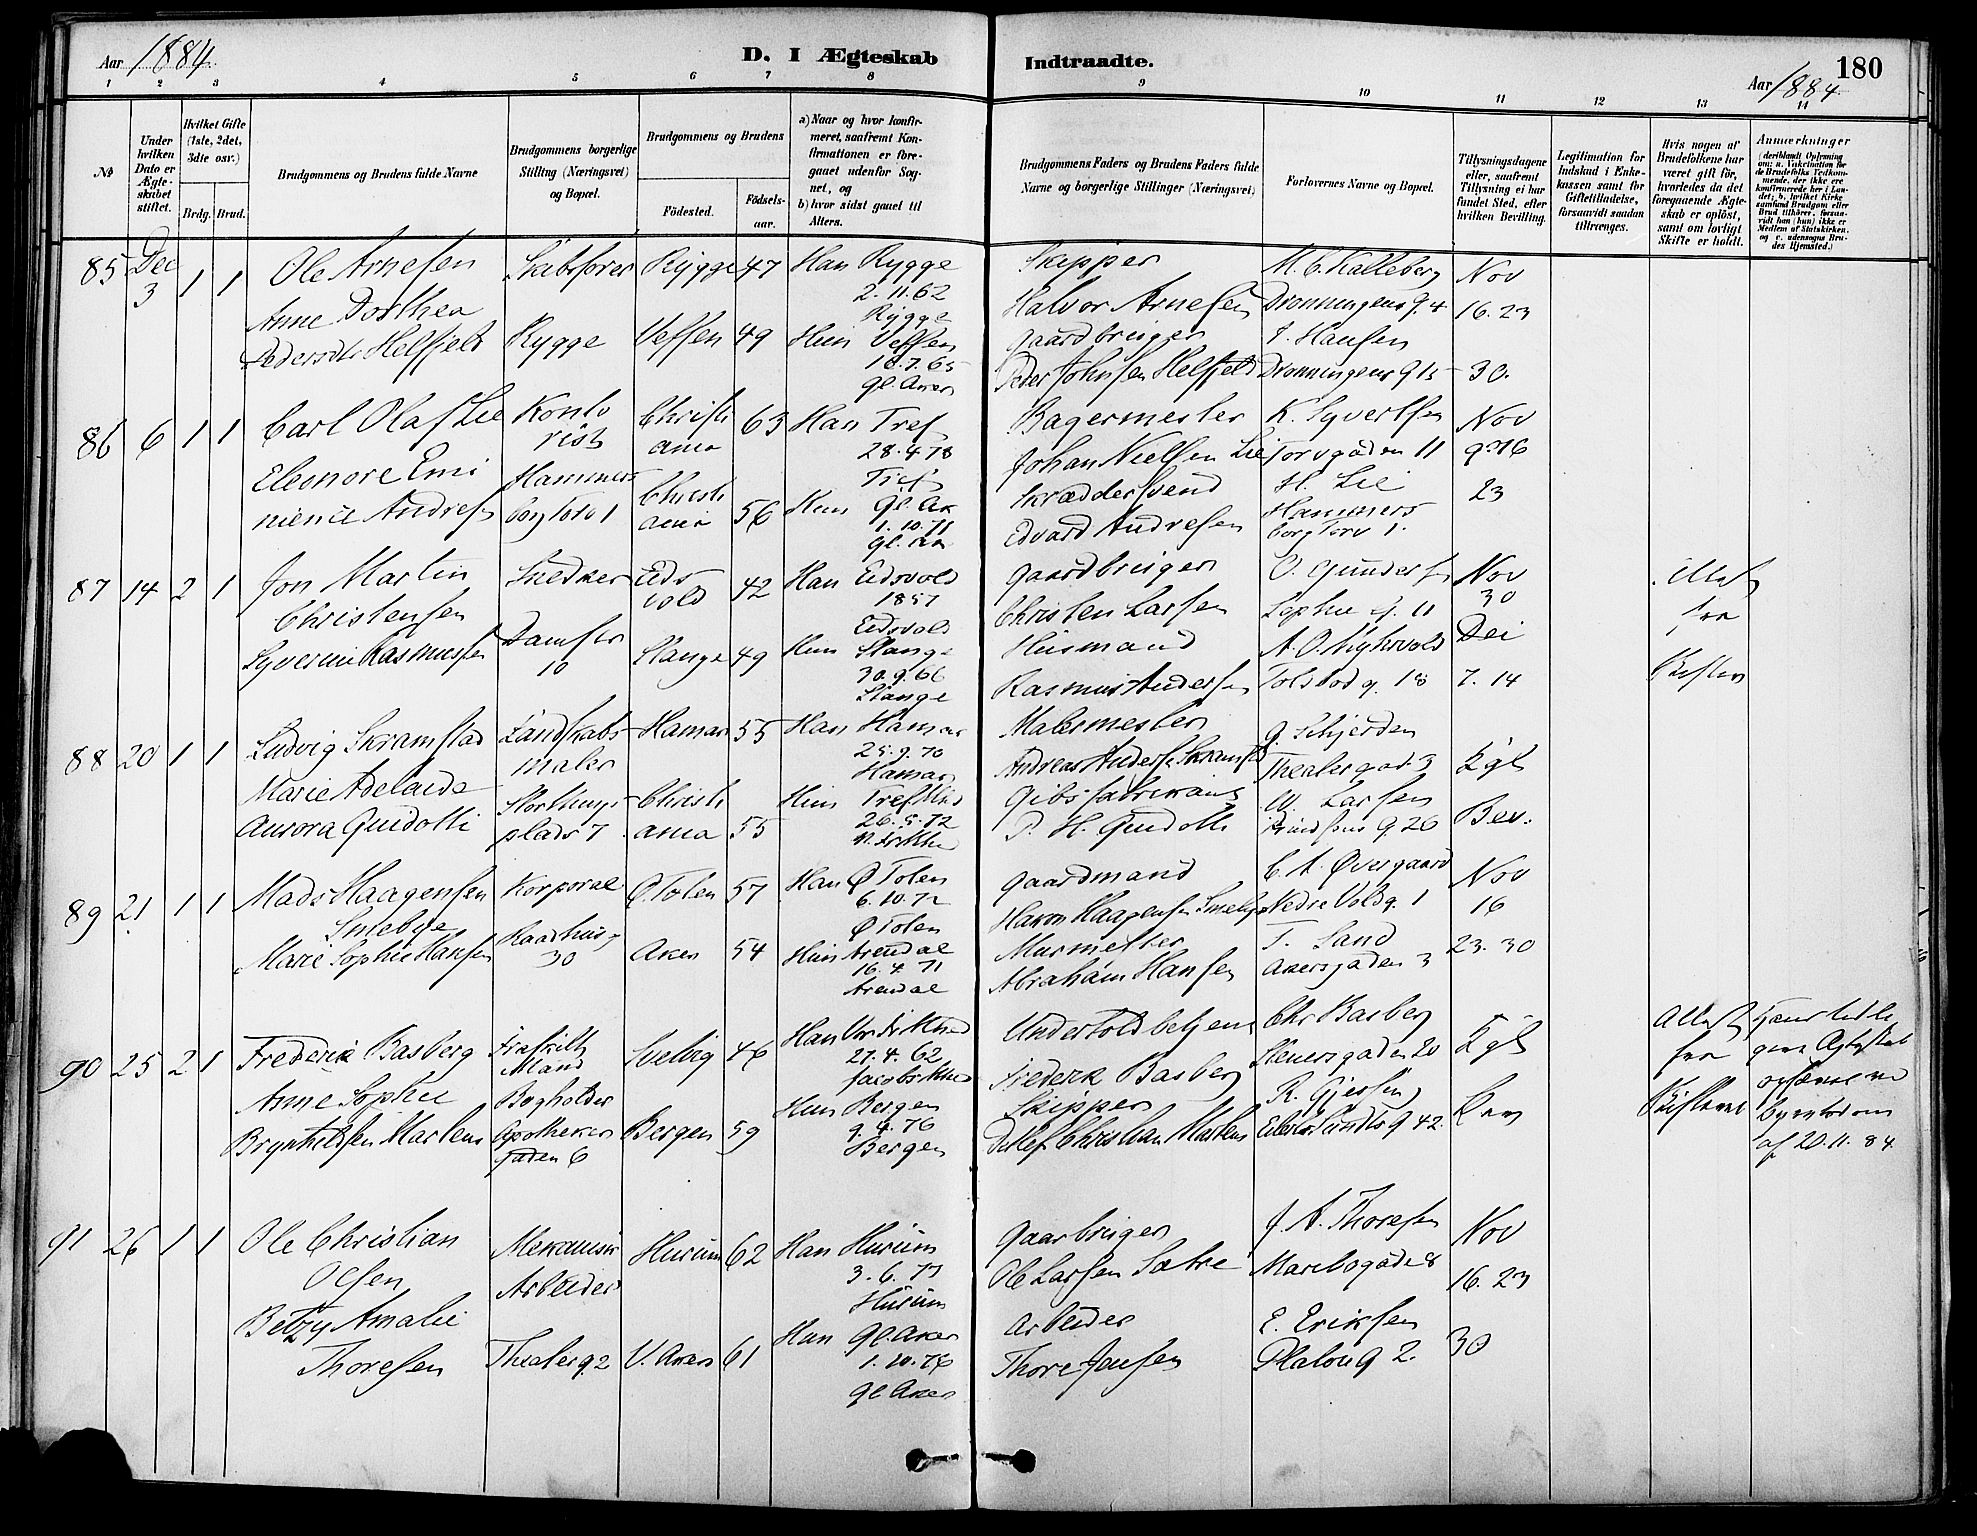 Aar 1884.
D. I Ægteskab
Indtraadte.
Aar 1884.
180
1 2 3 4 5 6 7 8
9 10 11 12 13 14
No
Under hvilken Dato er Ægteskabet stiftet.
Hvilket Gifte (1ste, 2det, 3die osv.)
Brdg. Brud.
Brudgommens og Brudens fulde Navne
Brudgommens borgerlige Stilling (Næringsvei) og Bopæl.
Brudgommens og Brudens
Födested.
Födselsaar.
a) Naar og hvor konfirmeret, saafremt Konfirmationen er foregaaet udenfor Sognet, og
b) hvor sidst gaaet til Alters.
Brudgommens Faders og Brudens Faders fulde Navne og borgerlige Stillinger (Næringsvei)
Forlovernes Navne og Bopæl.
Tillysningsdagene eller, saafremt Tillysning ei har fundet Sted, efter hvilken Bevilling.
Legitimation for Indskud i Enkekassen samt for Giftetilladelse, forsaavidt saadan tiltrænges.
Hvis nogen af Brudefolkene har været gift för, hvorledes da det foregaaende Ægteskab er oplöst, samt om lovligt Skifte er holdt.
Anmerkninger
85 Dec 3 1 1
Ole Arnesen
Skibsfører
Rygge 47
Han Rygge
2.11.62
Rygge
Skipper
Halvor Arnesen
M. C. Kalleberg
Dronningens g. 4
Nov
16. 23
Anne Dorthea
Pedersdtr Helfjeld
Rygge
49
Hun
gl. Aker
gaardbruger
Peder Johnsen Helfjeld
J. Hansen
Dronningens g 15
30.
86 6 1 1
Carl Olaf Lie
Kontorist
Christiania 63
Han Tref
28.4.78
Tref
Bagermester
Johan Nielsen Lie
K. Syvertsen
Torvgaden 11
Nov
9. 16
Eleonore Eminencie Andresen
Hammersborg Torv 1
Christiania 56
Hun gl. Ak
1.10.71
gl. Ak
Skræddersvend
Edvard Andresen
H. Lie
Hammersborg Torv 1.
23
87 14 2 1
Jon Martin
Christensen
Snedker
Eidsvold 42
Han Eidsvold
1857
Eidsvold
gaardbruger
Christen Larsen
O. Gundersen
Sophie g. 11
Nov
30
Att
fra
Skiften
Syverine Rasmussen
10
Stange 49
Hun Stange
30.9.66
Stange
Husmand
Rasmus Andersen
A. O. Myhrvold
Toldbodg. 18
Dec
7. 14
88 20 1 1
Ludvig Skramstad
Landskabsmaler
Hamar 55
Han Hamar
25.9.70
Hamar
Malermester
Andreas Anders. Skramstad
G. Schjerden
Theatergad 3
Kgl
Marie Adelaide
Aurora Guidotti
Storthingsplads 7
Christiania 55
Hun
26.5.72
Gibsfabrikant
P. H. Guidotti
W. Larsen
g. 26
Bev.
89 21 1 1
Mads Haagensen
Smebye
Korporal
Ø. Toten 57
Han Ø Toten
6.10.72
Ø Toten
gaardmand
Haagensen Smebye
C. A. Øvergaard
Nedre Voldg. 1
Nov
16
Marie Sophie Hansen
Raadhusg
30
Aker 54
Hun Arendal
16.4.71
Arendal
Murmester
Abraham Hansen
T. Sand
Akersgaden 3
23. 30
90 25 2 1
Frederik Basberg
Fraskilt
Mand
Svelvig 46
Han Vor Fr
27.4.62
Jacobs K
Undertoldbetjent
Frederik Basberg
Chr Basberg
Stenersgaden 20
Kgl
Attest
fra
Skifteret
Anne Sophie
Brynhildsen Martens
Bogholder
Apothekergaden 6
Bergen 59
Hun Bergen
9.4.76
Bergen
Skipper
Detlef Christian Martens
R. Gjessing
Eilert Sundts g 42.
Bev
af 20.11.84
91 26 1 1
Ole Christian
Olsen
Mekanisk
Arbeider
Hurum 62
Han Hurum
3.6.77
Hurum
Gaarbruger
Ole Larsen Sætre
J. A. Thoresen
Maribogade 8
Nov
16. 23
Betzy Amalie
Thoresen
Theaterg. 2
V. Aker 61
Hun Gl. Aker
1.10.76
Gl Aker
Arbeider
Thore Jensen
E. Eriksen
Platoug 2.
30